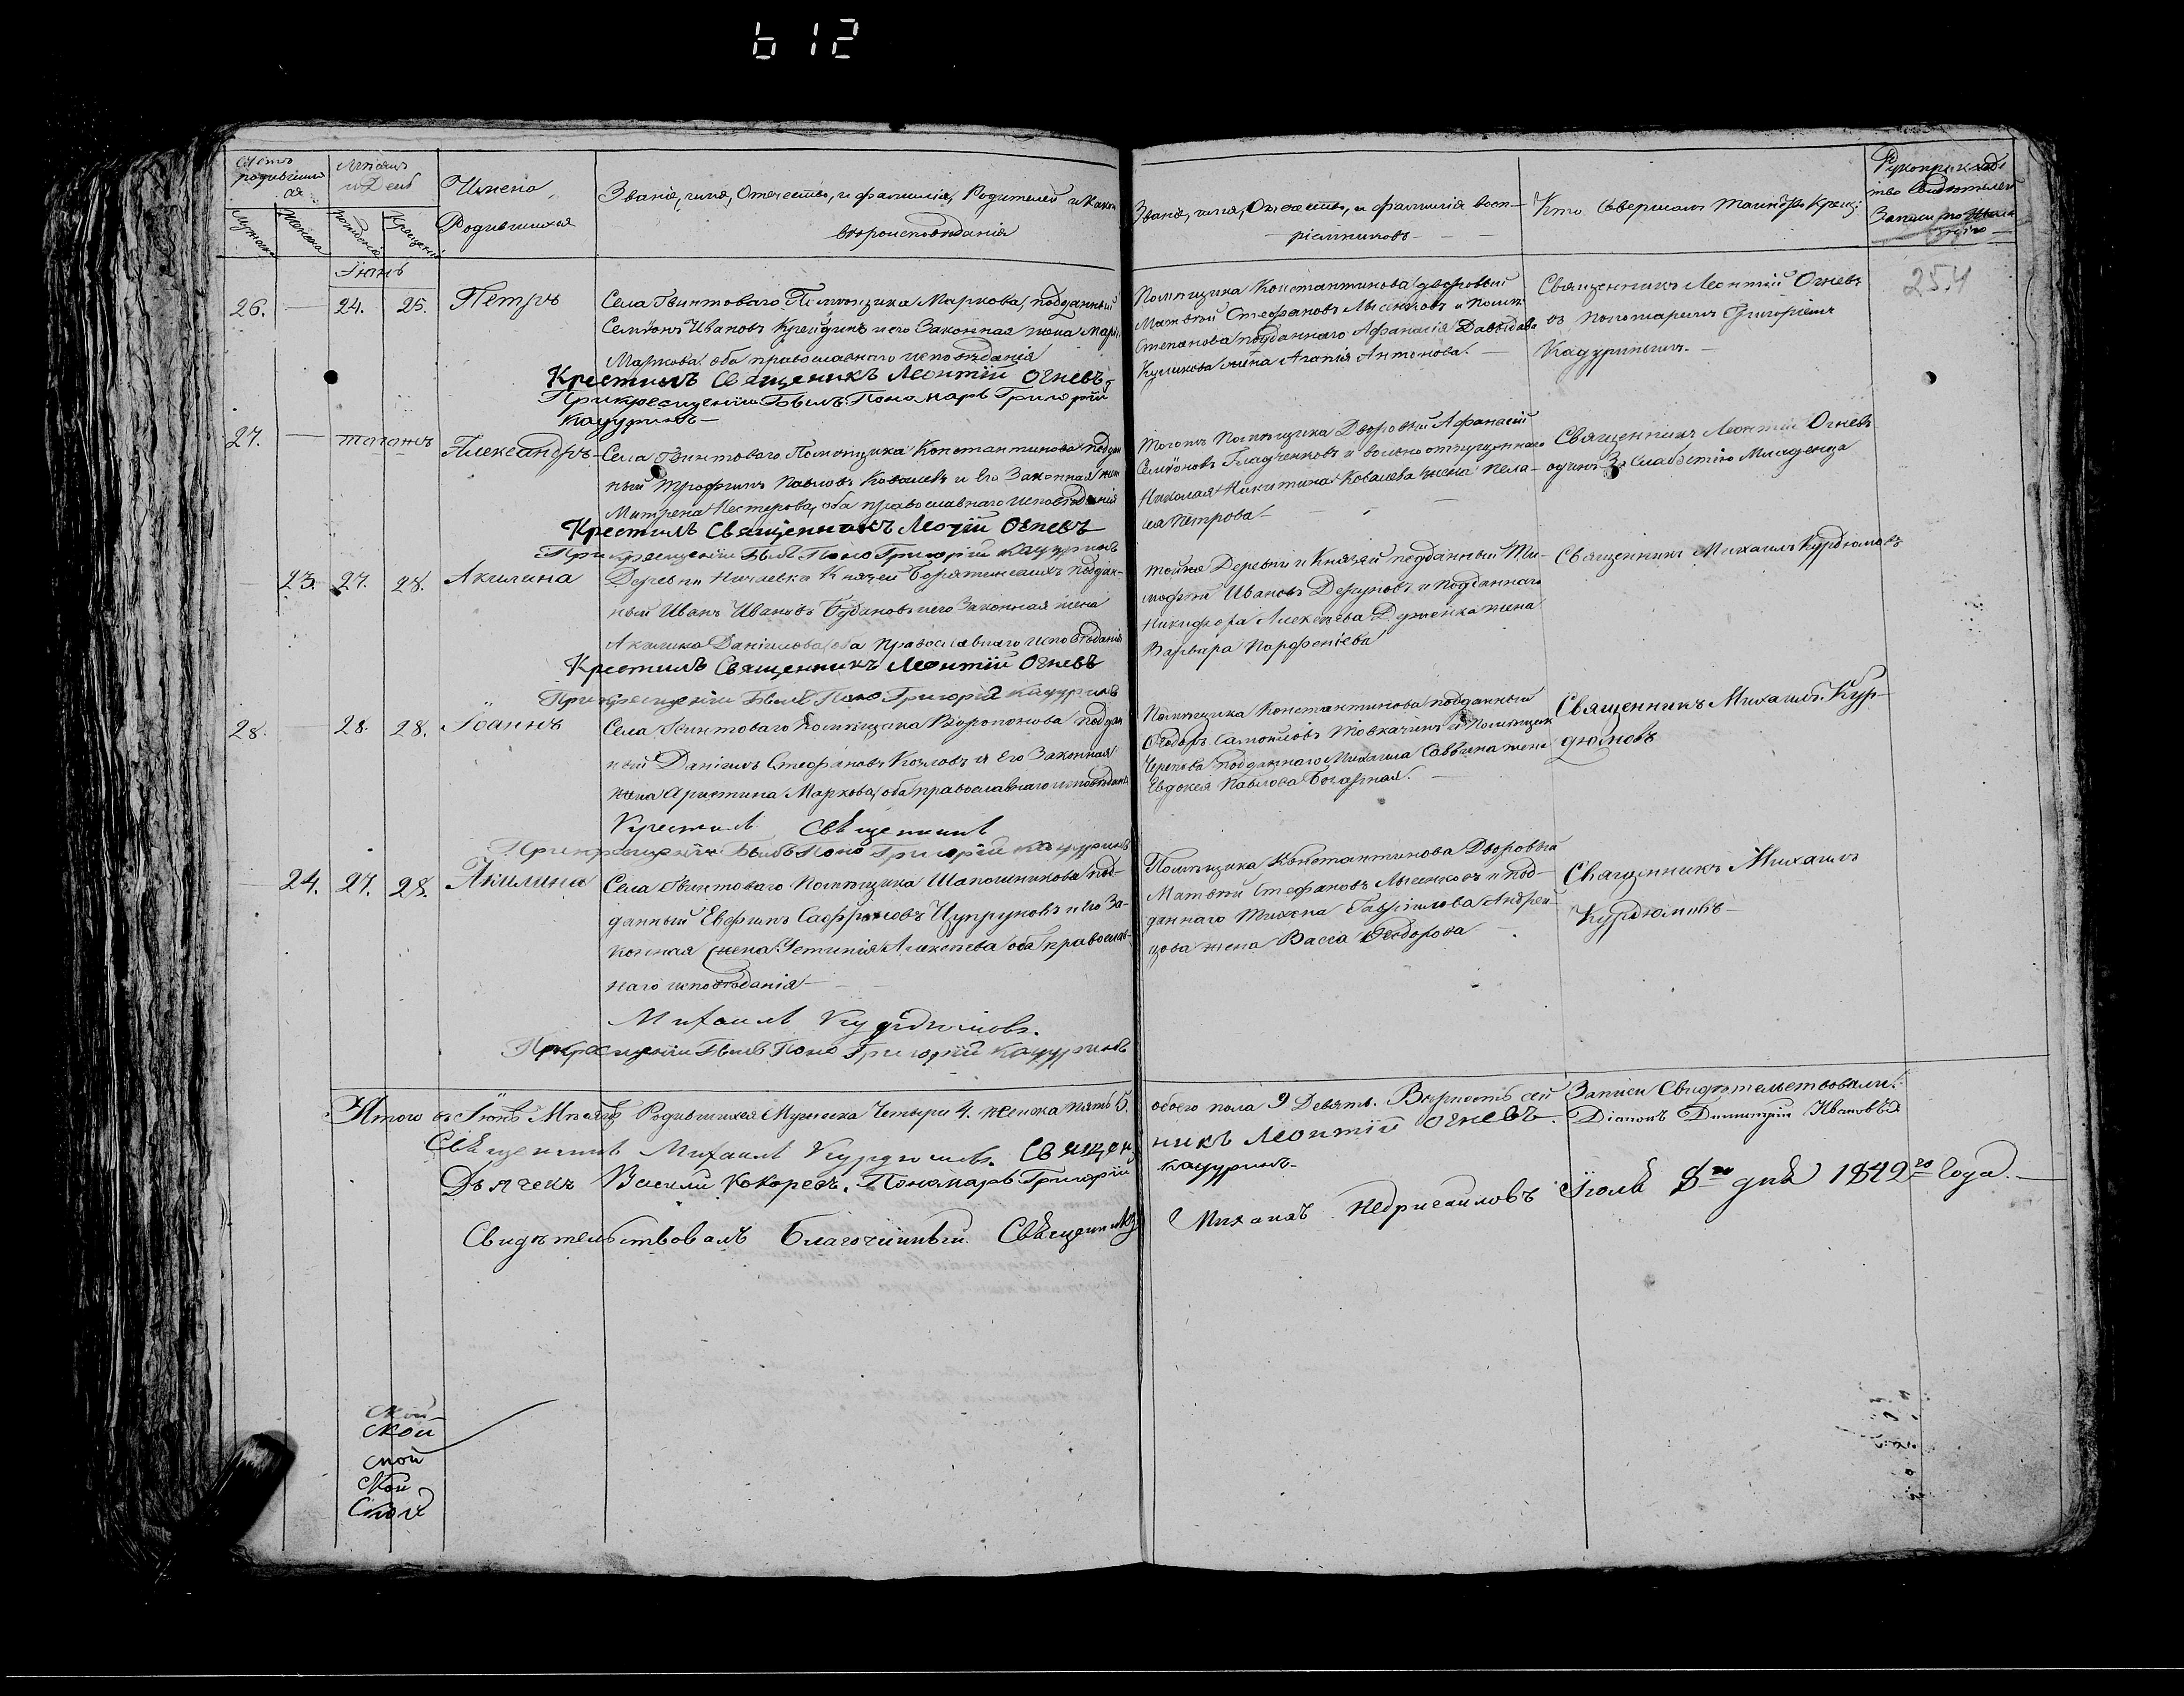 612
Счетъ родившихся
Мужеска
Женска
Мѣсяцъ и День
рожденія
Крещенія
Имена Родившихся
Званіе, имя, Отечество, и фамилія, Родителей и какого
вѣроисповѣданія
Званіе, имя, Отечество, и фамилія восп-
ріемниковъ
Кто Совершалъ Таинство Крещ:
Рукоприкладс
тво Свидѣтелей
Записи по
254
Іюнь
26. — 24. 25. Петръ
Села Гвинтоваго Помѣщика Маркова, подданный
Семіонъ Ивановъ и его Законная жена Марія
Маркова оба православнаго исповѣданія
Крестилъ Священикъ Леонтій Огневъ,
При крещеніи Былъ Пономаръ Григорій
Кацуринъ—
Помѣщика Константинова дворовый
Матвѣй Стефановъ Лысенковъ и помѣщ
Степанова подданнаго Афанасія Давыдова
Куликова жена Агапія Антонова. —
Священникъ Леонтій Огневъ
съ пономаремъ Григоріемъ
Кацуринымъ. —
27. — тогожъ Александръ
Села Гвинтоваго Помѣщика Константинова поддан
ный Трофимъ Павловъ Ковалевъ и его Законная жена
Матрена Нестерова, оба православнаго исповѣданія
Крестилъ Священникъ Леотій Огневъ
При крещеніи Былъ Поно Григорій Кацуринъ
тогожъ Помѣщика Дворовый Афанасій
Семіоновъ Гладченковъ и вольноотпущеннаго
Николая Никитина Ковалева жена Пела-
гея Петрова —
Священникъ Леонтій Огневъ
одинъ За слабостію Младенца
— 23. 27. 28. Акилина
Деревни Ничаевки Князей Борятинскихъ поддан-
ный Иванъ Ивановъ и его Законная жена
Даніилова оба Православнаго исповѣданія
Крестилъ Священникъ Леонтій Огневъ
При крещеніи Былъ Поно Григорій Кацуринъ
тойже Деревни и Князей подданный Ти-
мофей Ивановъ Дергуновъ и подданнаго
Никифора Алексеева жена
Варвара Парфеніева
Священникъ Михаилъ Курдюмовъ
28. 28. 28. Іоаннъ
Села Гвинтоваго Помѣщика Воропонова поддан
ный Даніилъ Стефановъ Козловъ и его Законная
жена Христина Маркова, оба православнаго исповѣданія
Крестилъ Священникъ
При крещеніи Былъ Поно Григорій Кацуринъ
Помѣщика Константинова подданный
Ѳеодоръ Самойловъ и Помѣщика
Черепова подданнаго Михаила Саввина жена
Евдокія Павлова
Священникъ Михаилъ Кур-
дюмовъ
24. 27. 28. Акилина
Села Гвинтоваго Помѣщика Шапошникова под-
данный Евфимъ Сафроновъ Цупруновъ и его За-
конная жена Фетинія Алексеева оба православ-
наго исповѣданія —
Михаилъ Курдюмовъ.
При крещеніи Былъ Поно Григорій Кацуринъ
Помѣщика Константинова Дворовый
Матвей Стефановъ Лысенковъ и под-
даннаго Тихона Гавріилова Андрей
цова жена Васса Ѳеодорова
Священникъ Михаилъ
Курдюмовъ —
Итого въ Іюнѣ Мѣсяцѣ Родившихся Мужеска Четыри 4. женска пять 5. обоего пола 9 Девять. Вѣрность сей Записи Свидѣтельствовали:
Священникъ Михаилъ Курдюмовъ. Священникъ Леонтій Огневъ. Діаконъ Димитрій Ивановъ
Дьячекъ Василий Кокоревъ. Пономаръ Григорій Кацуринъ.
Свидѣтельствовалъ Благочинный Священникъ Михаилъ Недригайловъ Іюля 8го дня 1842го Года. —
ской
ской
ской
ской